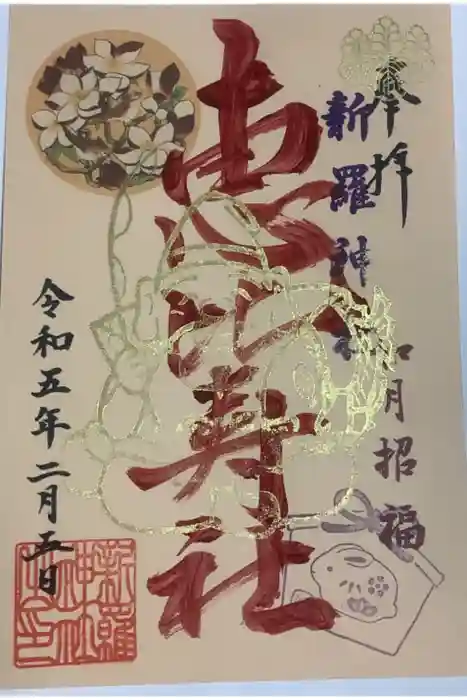 奉拝
新羅神社
如月招福
恵比寿社
令和五年二月五日
新羅
神社
之印